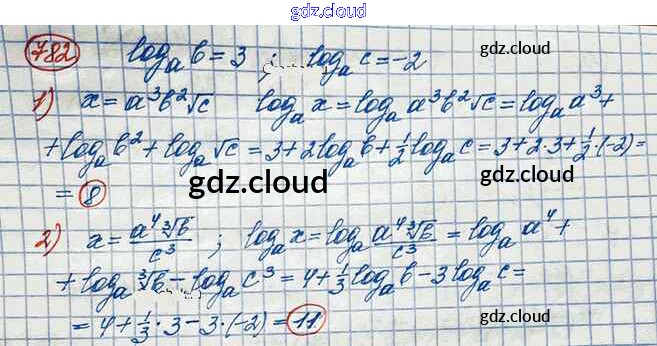 gdz.cloud
gdz.cloud
782 log_a b = 3 ; log_a c = -2 gdz.cloud
1) x = a³b²√c log_a x = log_a a³b²√c = log_a a³ +
gdz.cloud
+ log_a b² + log_a √c = 3 + 2log_a b + ½ log_a c = 3 + 2·3 + ½·(-2) =
= 8 gdz.cloud gdz.cloud
2) x = a⁴∛b / c³ ; log_a x = log_a a⁴∛b / c³ = log_a a⁴ +
+ log_a ∛b - log_a c³ = 4 + ⅓ log_a b - 3 log_a c =
gdz.cloud
= 4 + ⅓·3 - 3·(-2) = 11 gdz.cloud